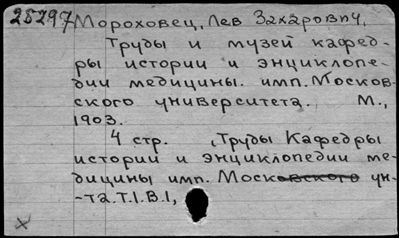 25297 Мороховец, Лев Захарович.
Труды и музей кафед-
ры истории и энциклопе-
дии медицины. имп. Москов-
ского университета. М.,
1903.
4 стр. , Труды Кафедры
истории и энциклопедии ме-
дицины имп. Московского ун-
-та. Т.I. В.I,
x